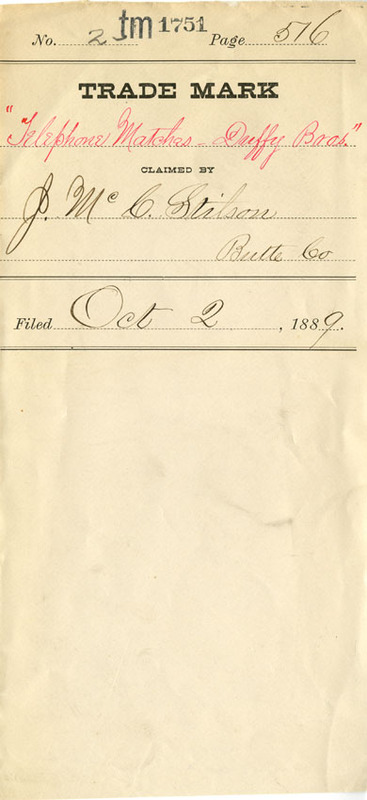 No. 2 tm 1751 Page 516
TRADE MARK
"Telephone Matches - Duffy Bros."
CLAIMED BY
J. Mc C. Stilson
Butte Co
Filed Oct 2, 1889.